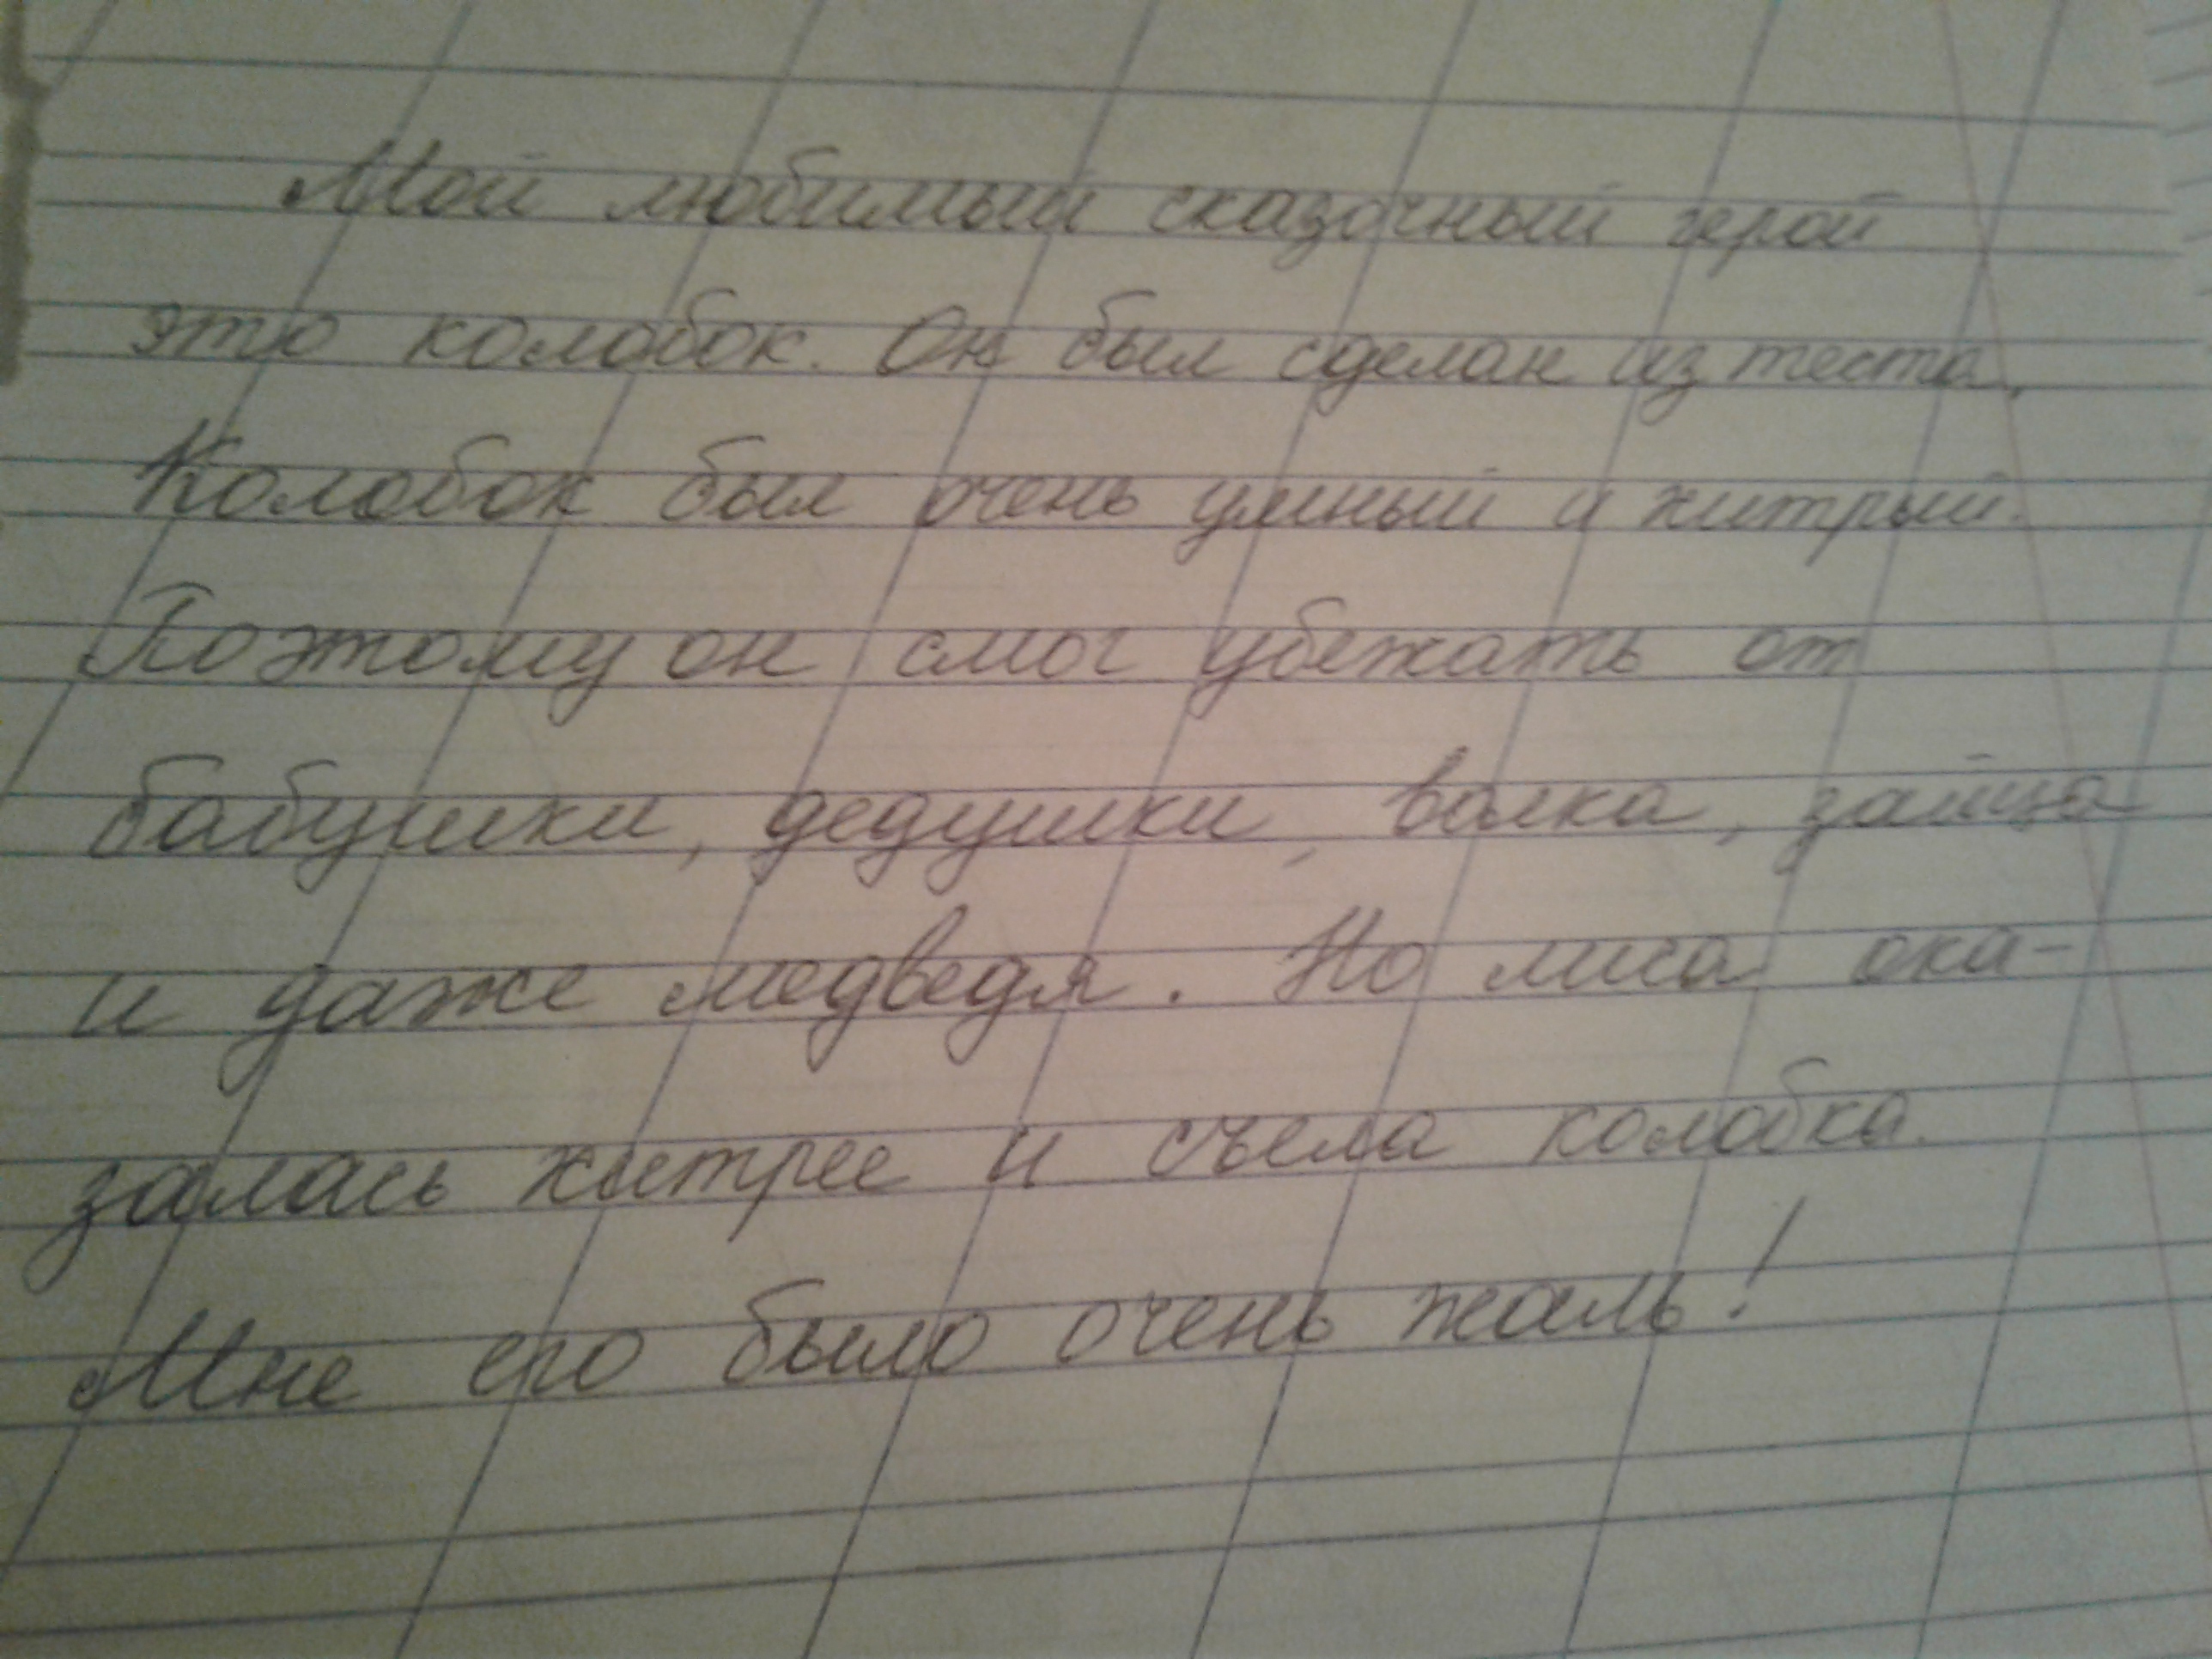 Мой любимый сказочный герой
это колобок. Он был сделан из теста.
Колобок был очень умный и хитрый.
Поэтому он смог убежать от
бабушки, дедушки, волка, зайца
и даже медведя. Но лиса ока-
залась хитрее и съела колобка.
Мне его было очень жаль!